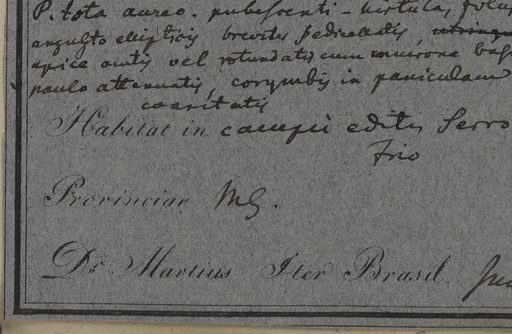 P. tota aureo-pubescenti-hirtula, foliis
angusto ellipticis breviter pedicellatis, utrinque
apice acutis vel rotundatis cum mucrone basi
paulo attenuatis, corymbis in paniculam
coarctatis
Habitat in campis editis Serro
Frio
Provinciae MG.
Dr. Martius Iter Brasil.